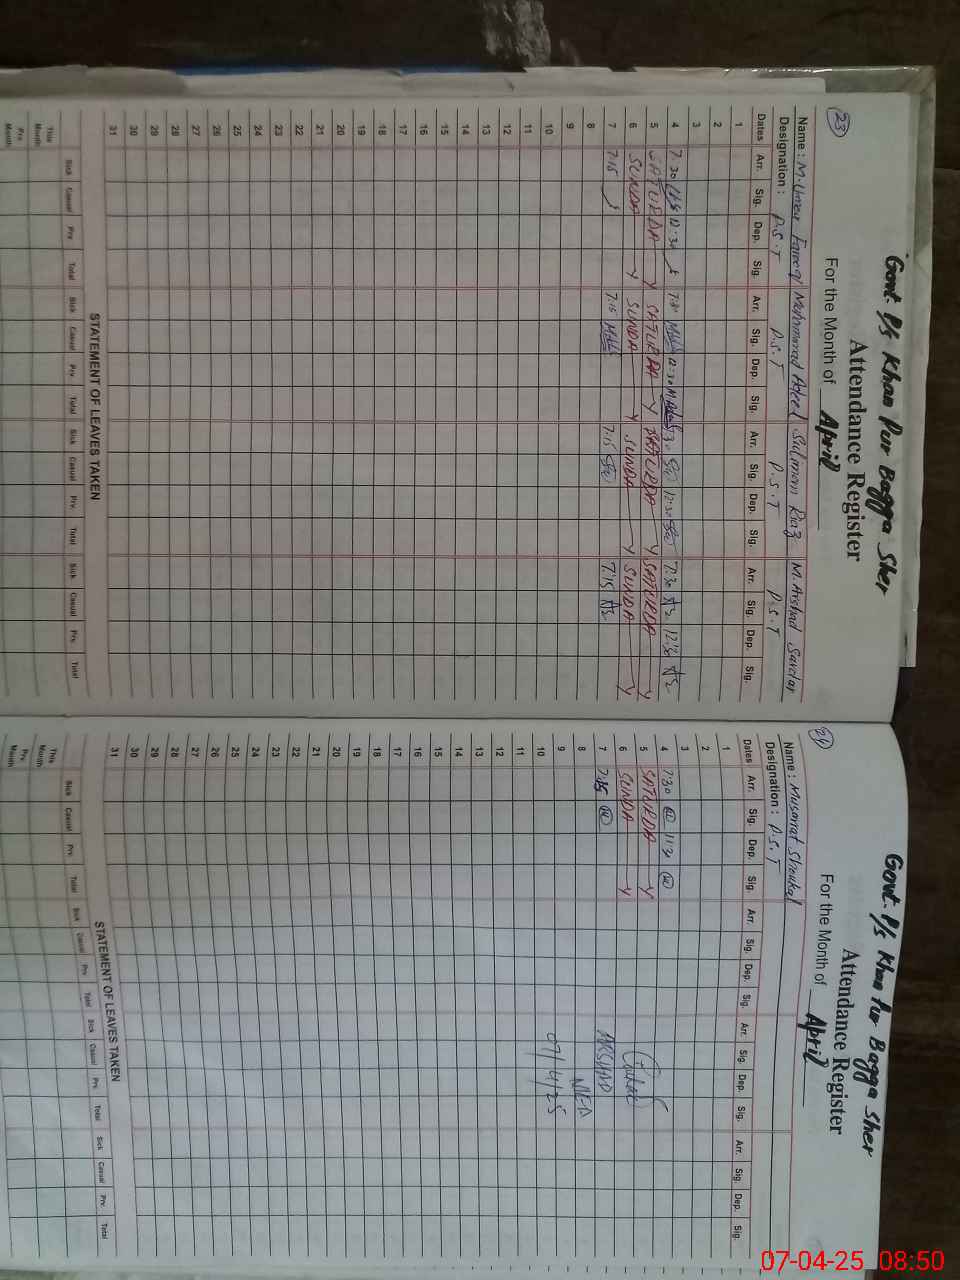 23
Govt. P/S Khan Pur Bagga Sher
Attendance Register
For the Month of April
Name : M. Umer Farooq Mohammad Adeel Sulman Riaz M. Arshad Sardar
Designation : P.S.T P.S.T P.S.T P.S.T
Dates Arr. Sig. Dep. Sig. Arr. Sig. Dep. Sig. Arr. Sig. Dep. Sig. Arr. Sig. Dep. Sig.
1
2
3
4 7:30 12:30 7:30 12:30 7:30 12:30 7:30 12:30
5 SATURDAY SATURDAY SATURDAY SATURDAY
6 SUNDAY SUNDAY SUNDAY SUNDAY
7 7:15 7:15 7:15 7:15
8
9
10
11
12
13
14
15
16
17
18
19
20
21
22
23
24
25
26
27
28
29
30
31
STATEMENT OF LEAVES TAKEN
Sick Casual Prv. Total Sick Casual Prv. Total Sick Casual Prv. Total Sick Casual Prv. Total
This Month
Prv. Month
24
Govt. P/S Khan Pur Bagga Sher
Attendance Register
For the Month of April
Name : Musarrat Shoukat
Designation : P.S.T
Dates Arr. Sig. Dep. Sig. Arr. Sig. Dep. Sig. Arr. Sig. Dep. Sig. Arr. Sig. Dep. Sig.
1
2
3
4 7:30 11:30
5 SATURDAY
6 SUNDAY
7 7:15 ARSHAD
8 MEA
9
10 07/4/25
11
12
13
14
15
16
17
18
19
20
21
22
23
24
25
26
27
28
29
30
31
STATEMENT OF LEAVES TAKEN
Sick Casual Prv. Total Sick Casual Prv. Total Sick Casual Prv. Total Sick Casual Prv. Total
This Month
Prv. Month
07-04-25 08:50